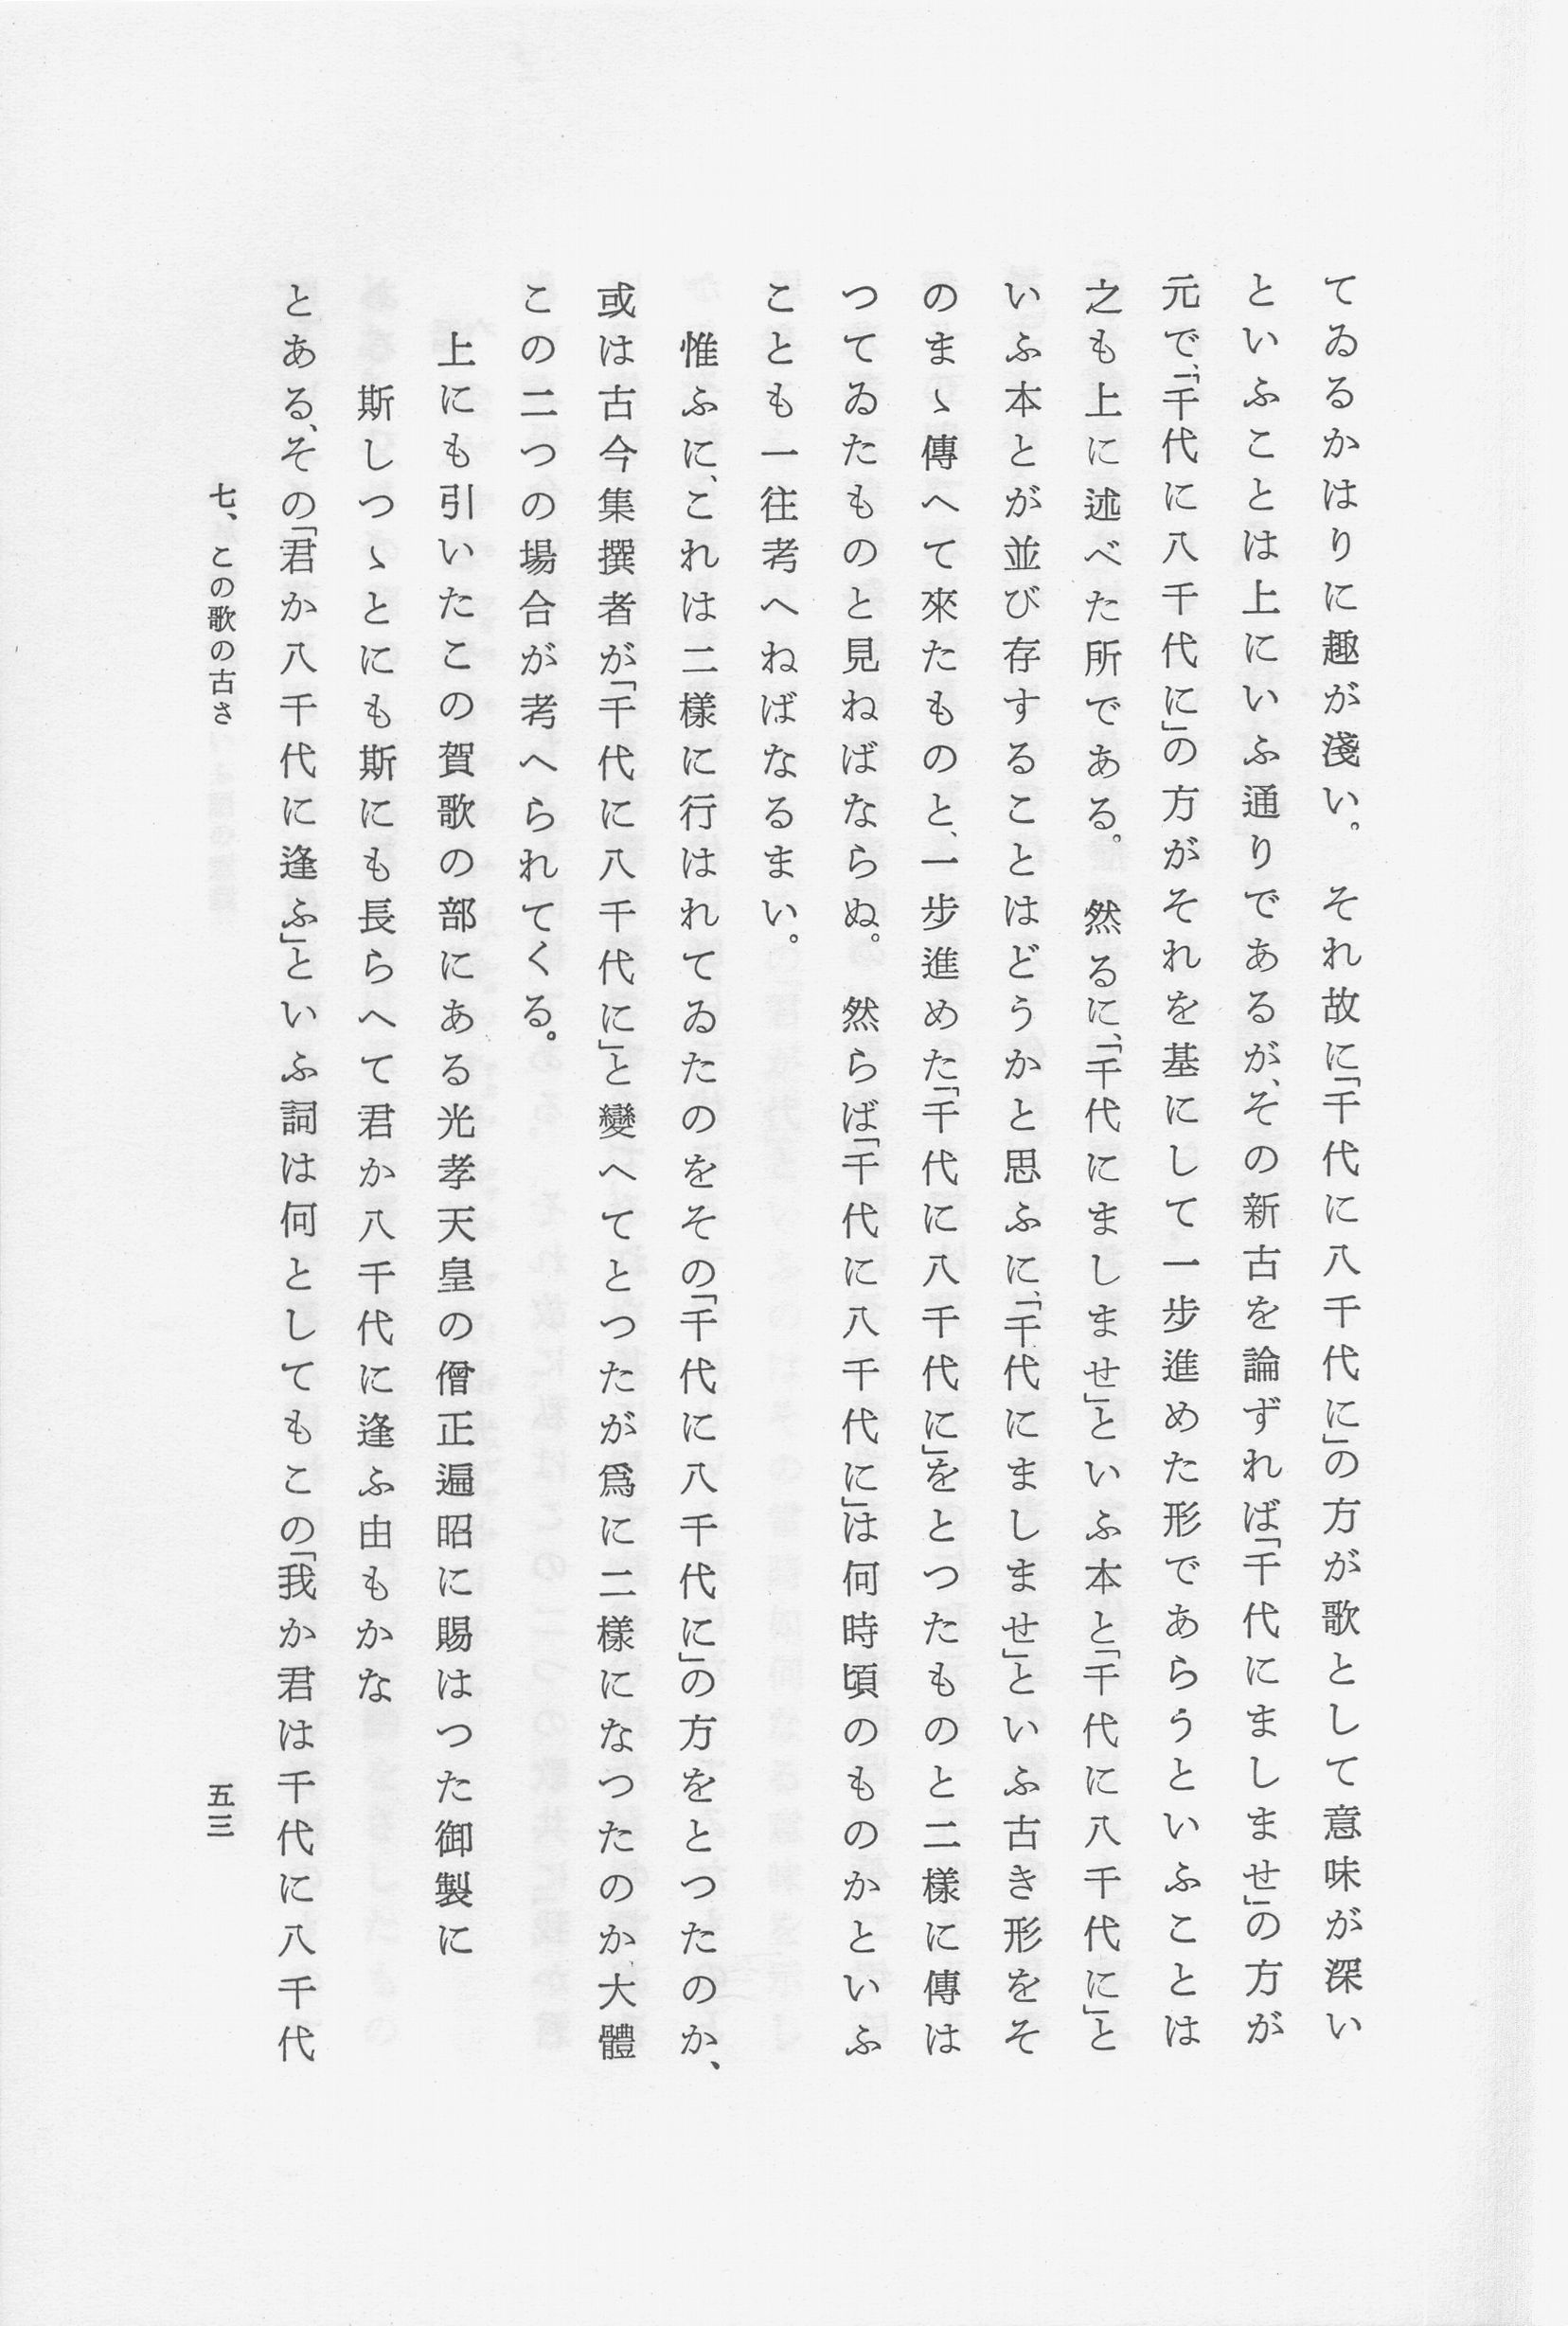 てゐるかはりに趣が淺い。　それ故に「千代に八千代に」の方が歌として意味が深い
といふことは上にいふ通りであるが、その新古を論ずれば「千代にましませ」の方が
元で、「千代に八千代に」の方がそれを基にして一歩進めた形であらうといふことは
之も上に述べた所である。　然るに、「千代にましませ」といふ本と「千代に八千代に」と
いふ本とが並び存することはどうかと思ふに、「千代にましませ」といふ古き形をそ
のまゝ傳へて來たものと、一歩進めた「千代に八千代に」をとつたものと二樣に傳は
つてゐたものと見ねばならぬ。　然らば「千代に八千代に」は何時頃のものかといふ
ことも一往考へねばなるまい。
　惟ふに、これは二樣に行はれてゐたのをその「千代に八千代に」の方をとつたのか、
或は古今集撰者が「千代に八千代に」と變へてとつたが爲に二樣になつたのか、大體
この二つの場合が考へられてくる。
　上にも引いたこの賀歌の部にある光孝天皇の僧正遍昭に賜はつた御製に
　　斯しつゝとにも斯にも長らへて君か八千代に逢ふ由もかな
とある、その「君か八千代に逢ふ」といふ詞は何としてもこの「我か君は千代に八千代
七、この歌の古さ
五三